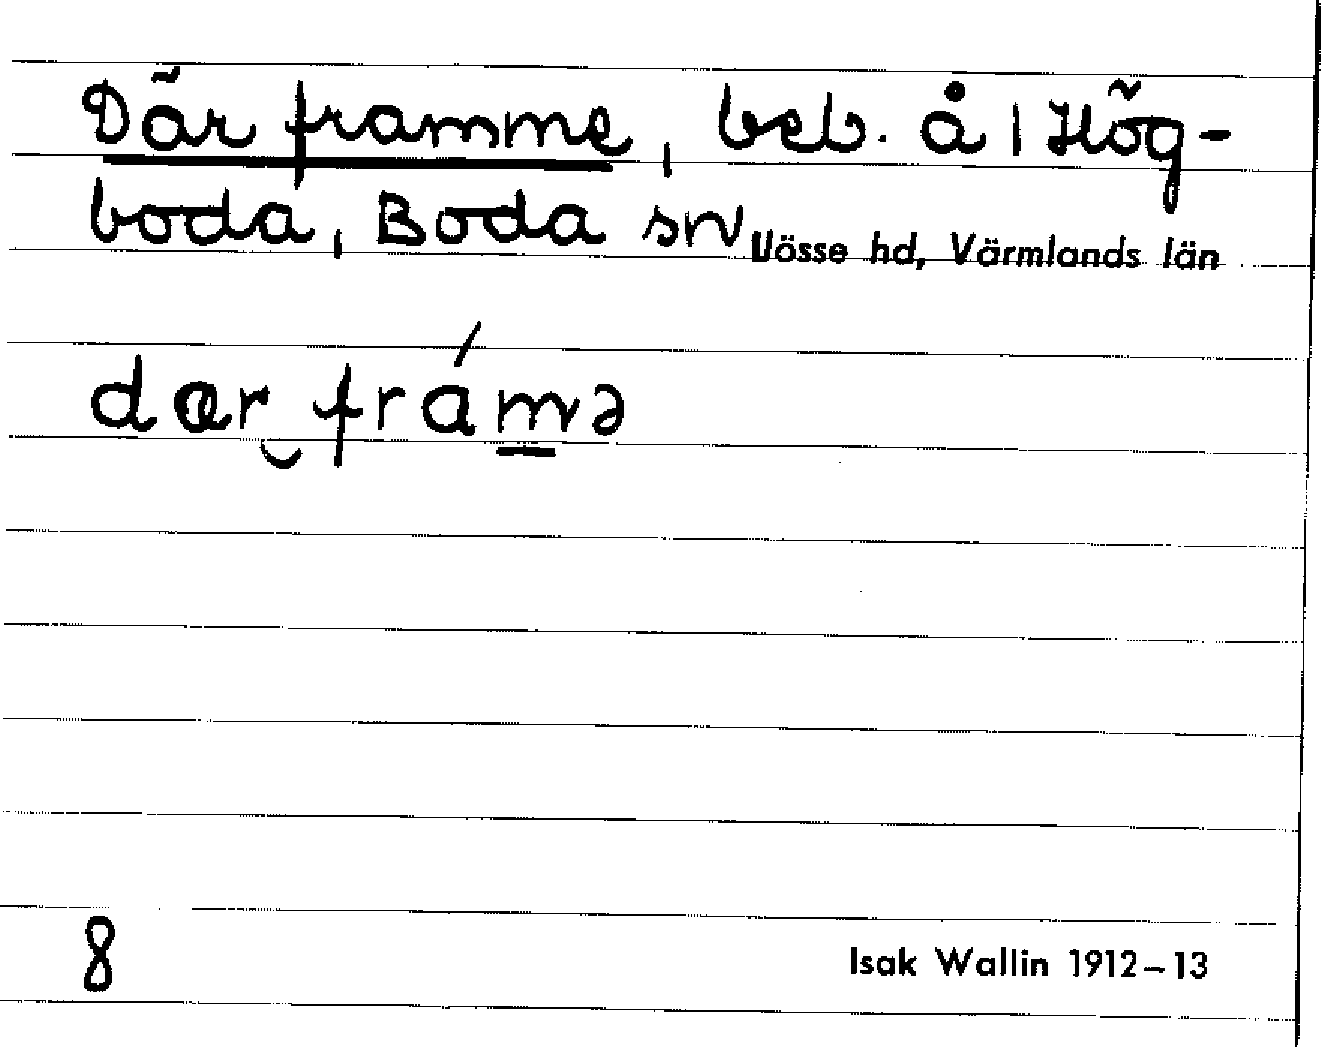 Där framme, beb. å 1 Hög-
boda, Boda sn Jösse hd, Värmlands län
dær framə
8
Isak Wallin 1912–13